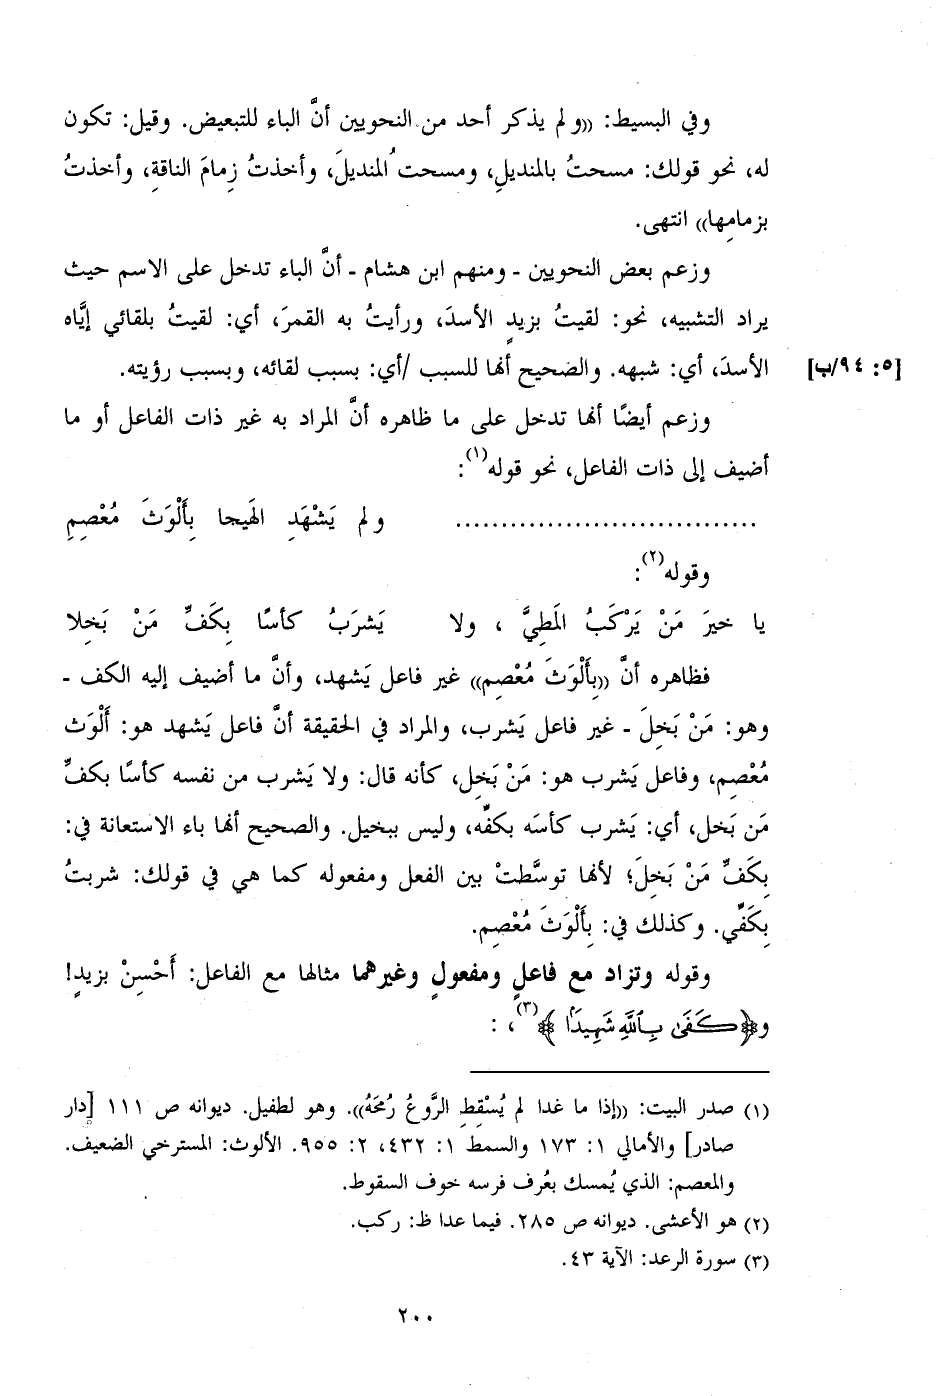 وفي البسيط: ((ولم يذكر أحد من النحويين أنَّ الباء للتبعيض. وقيل: تكون
له، نحو قولك: مسحتُ بالمنديلِ، ومسحت ُالمنديلَ، وأخذتُ زِمامَ الناقةِ، وأخذتُ
بزمامِها)) انتهى.
وزعم بعض النحويين - ومنهم ابن هشام - أنَّ الباء تدخل على الاسم حيث
يراد التشبيه، نحو: لقيتُ بزيدٍ الأسدَ، ورأيتُ به القمرَ، أي: لقيتُ بلقائي إيَّاه
الأسدَ، أي: شبهه. والصحيح أنها للسبب /أي: بسبب لقائه، وبسبب رؤيته. [٥: ٩٤/ب]
وزعم أيضًا أنها تدخل على ما ظاهره أنَّ المراد به غير ذات الفاعل أو ما
أضيف إلى ذات الفاعل، نحو قوله(١):
................................ ولم يَشْهَدِ الهَيجا بِأَلْوَثَ مُعْصِمِ
وقوله(٢):
يا خيرَ مَنْ يَرْكَبُ المَطِيَّ ، ولا يَشرَبُ كأسًا بِكَفِّ مَنْ بَخِلا
فظاهره أنَّ ((بِأَلْوَثَ مُعْصِم)) غير فاعل يَشهد، وأنَّ ما أضيف إليه الكف -
وهو: مَنْ بَخِلَ - غير فاعل يَشرب، والمراد في الحقيقة أنَّ فاعل يَشهد هو: أَلْوَث
مُعْصِم، وفاعل يَشرب هو: مَنْ بَخِل، كأنه قال: ولا يَشرب من نفسه كأسًا بكفِّ
مَن بَخل، أي: يَشرب كأسَه بكفِّه، وليس ببخيل. والصحيح أنها باء الاستعانة في:
بِكَفِّ مَنْ بَخِلَ؛ لأنها توسَّطتْ بين الفعل ومفعوله كما هي في قولك: شربتُ
بِكَفِّي. وكذلك في: بِأَلْوَثَ مُعْصِم.
وقوله وتزاد مع فاعلٍ ومفعولٍ وغيرهما مثالها مع الفاعل: أَحْسِنْ بزيدٍ!
و﴿كَفَىٰ بِٱللَّهِ شَهِيدًا﴾(٣)، :
(١) صدر البيت: ((إذا ما غدا لم يُسْقِطِ الرَّوعُ رُمْحَهُ)). وهو لطفيل. ديوانه ص ١١١ [دار
صادر] والأمالي ١: ١٧٣ والسمط ١: ٤٣٢، ٢: ٩٥٥. الألوث: المسترخي الضعيف.
والمعصم: الذي يُمسك بعُرف فرسه خوف السقوط.
(٢) هو الأعشى. ديوانه ص ٢٨٥. فيما عدا ظ: ركب.
(٣) سورة الرعد: الآية ٤٣.
٢٠٠